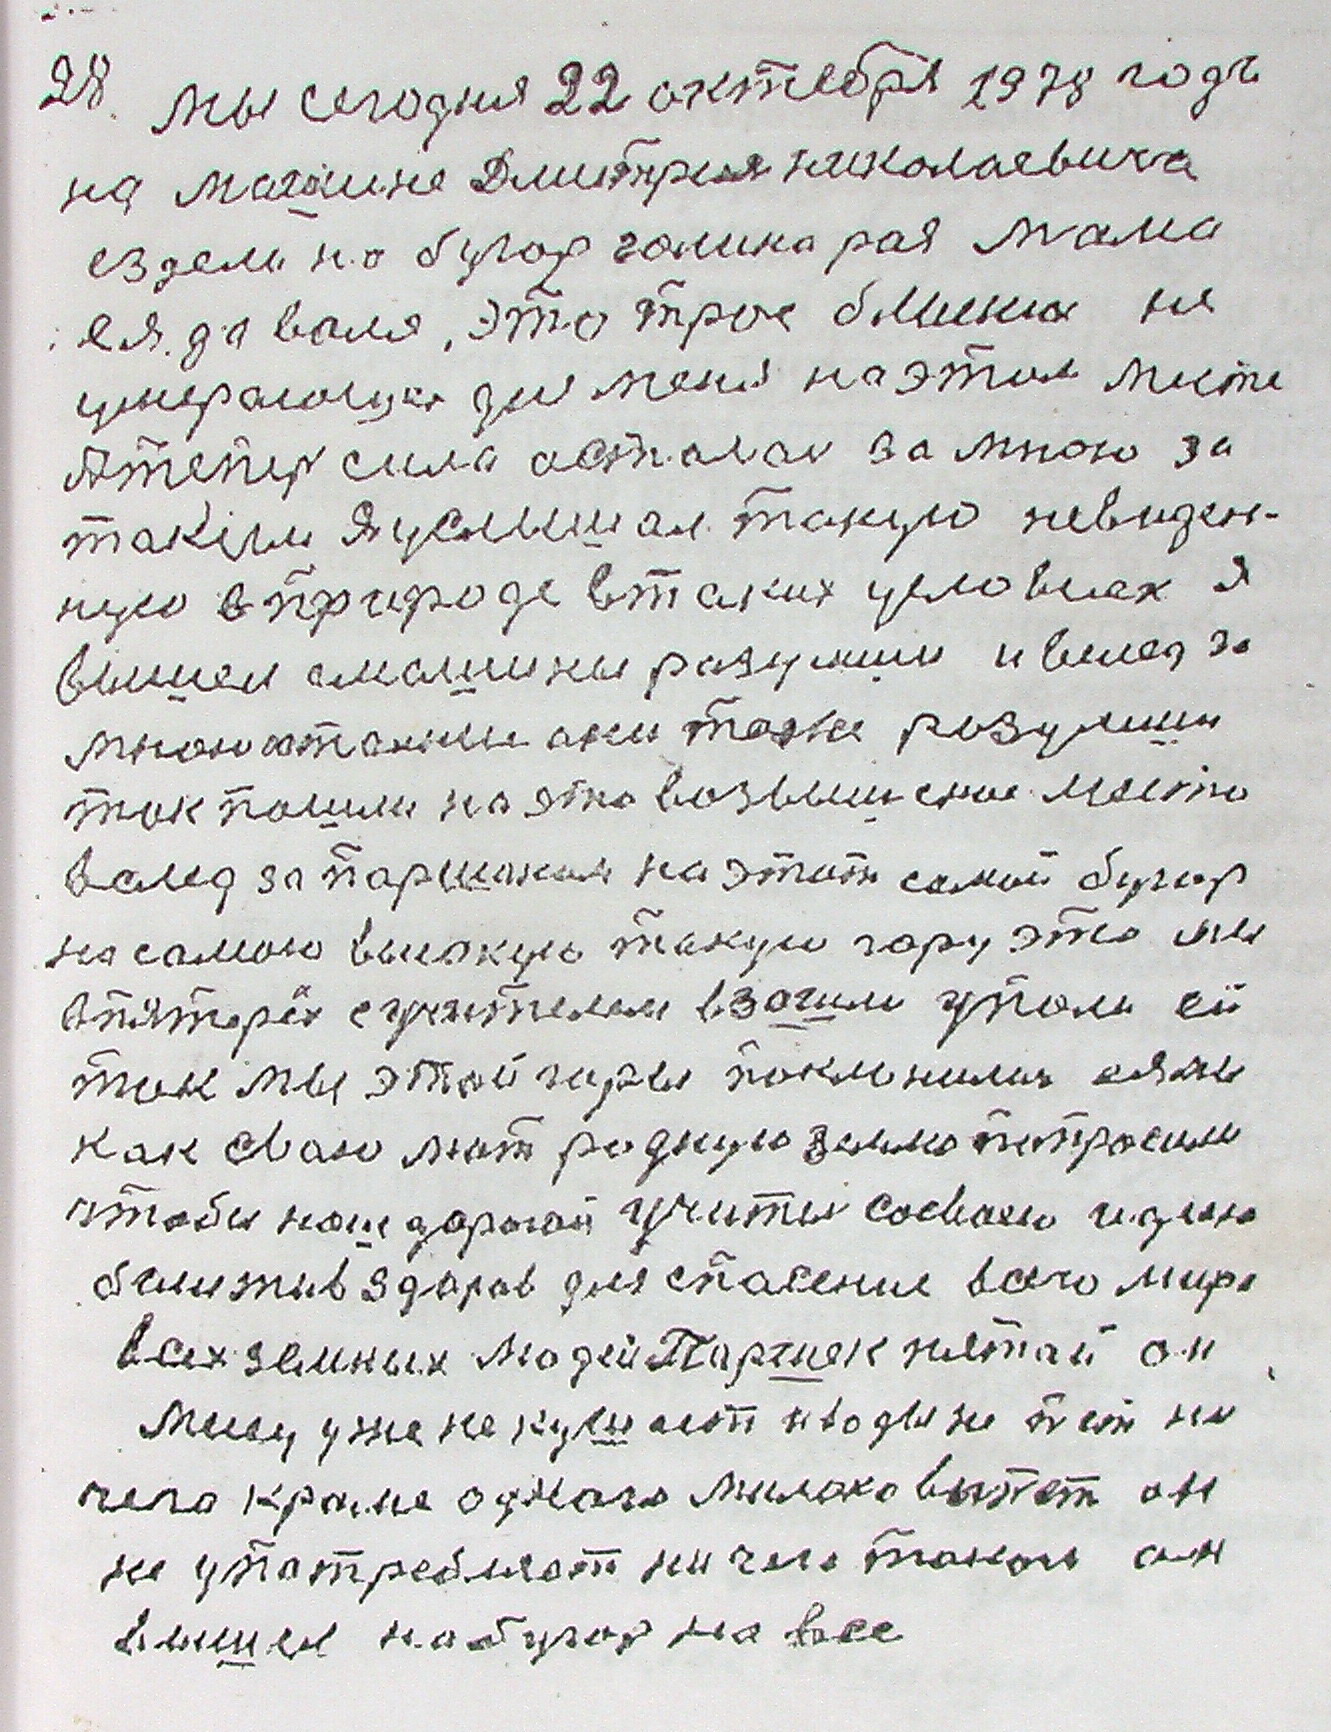 28. Мы сегодня 22 октебря 1978 годъ
на машине Дмитрия николаевича
ездели на бугор галина рая мама
ея да валя, это трое близких не
умерающих для меня на этом месте
Атепер сила осталас за мною за
таким Я услышал такую невиден-
ную вприроде втаких условиях я
вышел смашины разулши и вслед за
мною атакими они тоже разулши
так пошли на это возвышеное место
вслед за паршеком на этот самой бугор
на самою высокую такую гару это мы
впятерёх сучителем взошли упали ей
так мы этой гары поклонились
как сваю мат родную землю попросили
чтобы наш дорогой учител сосваею идеею
был жив здоров для спасение всего мира
всех земных людей Паршек пятай он
месу уже не кушает иводы не пет ни
чего краме одного малако выпет он
не упатребляет ничего такога он
вышел на бугор на все